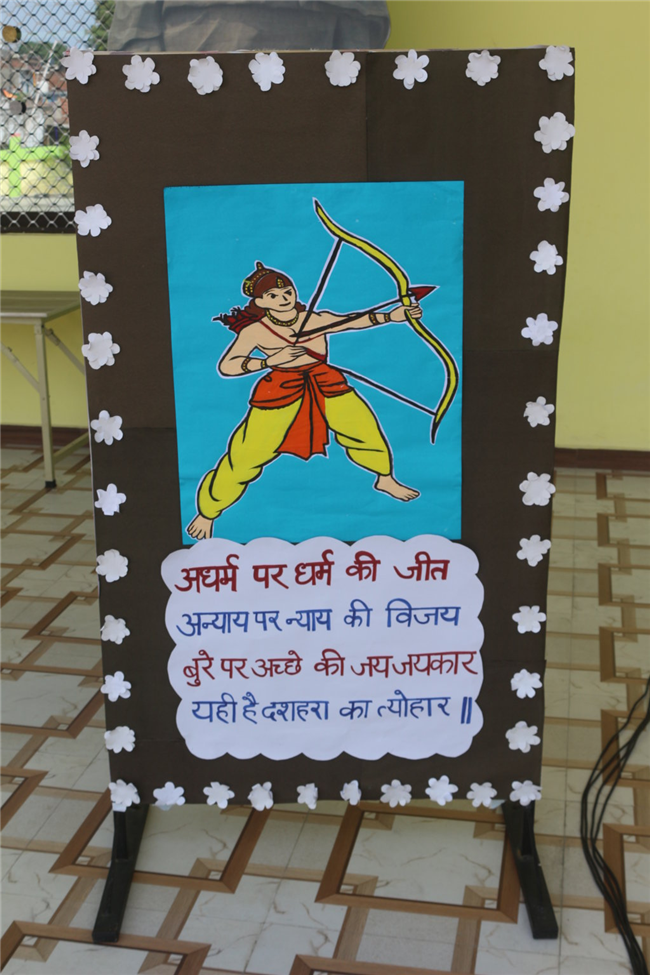 अधर्म पर धर्म की जीत
अन्याय पर न्याय की विजय
बुरे पर अच्छे की जयजयकार
यही है दशहरा का त्योहार ॥